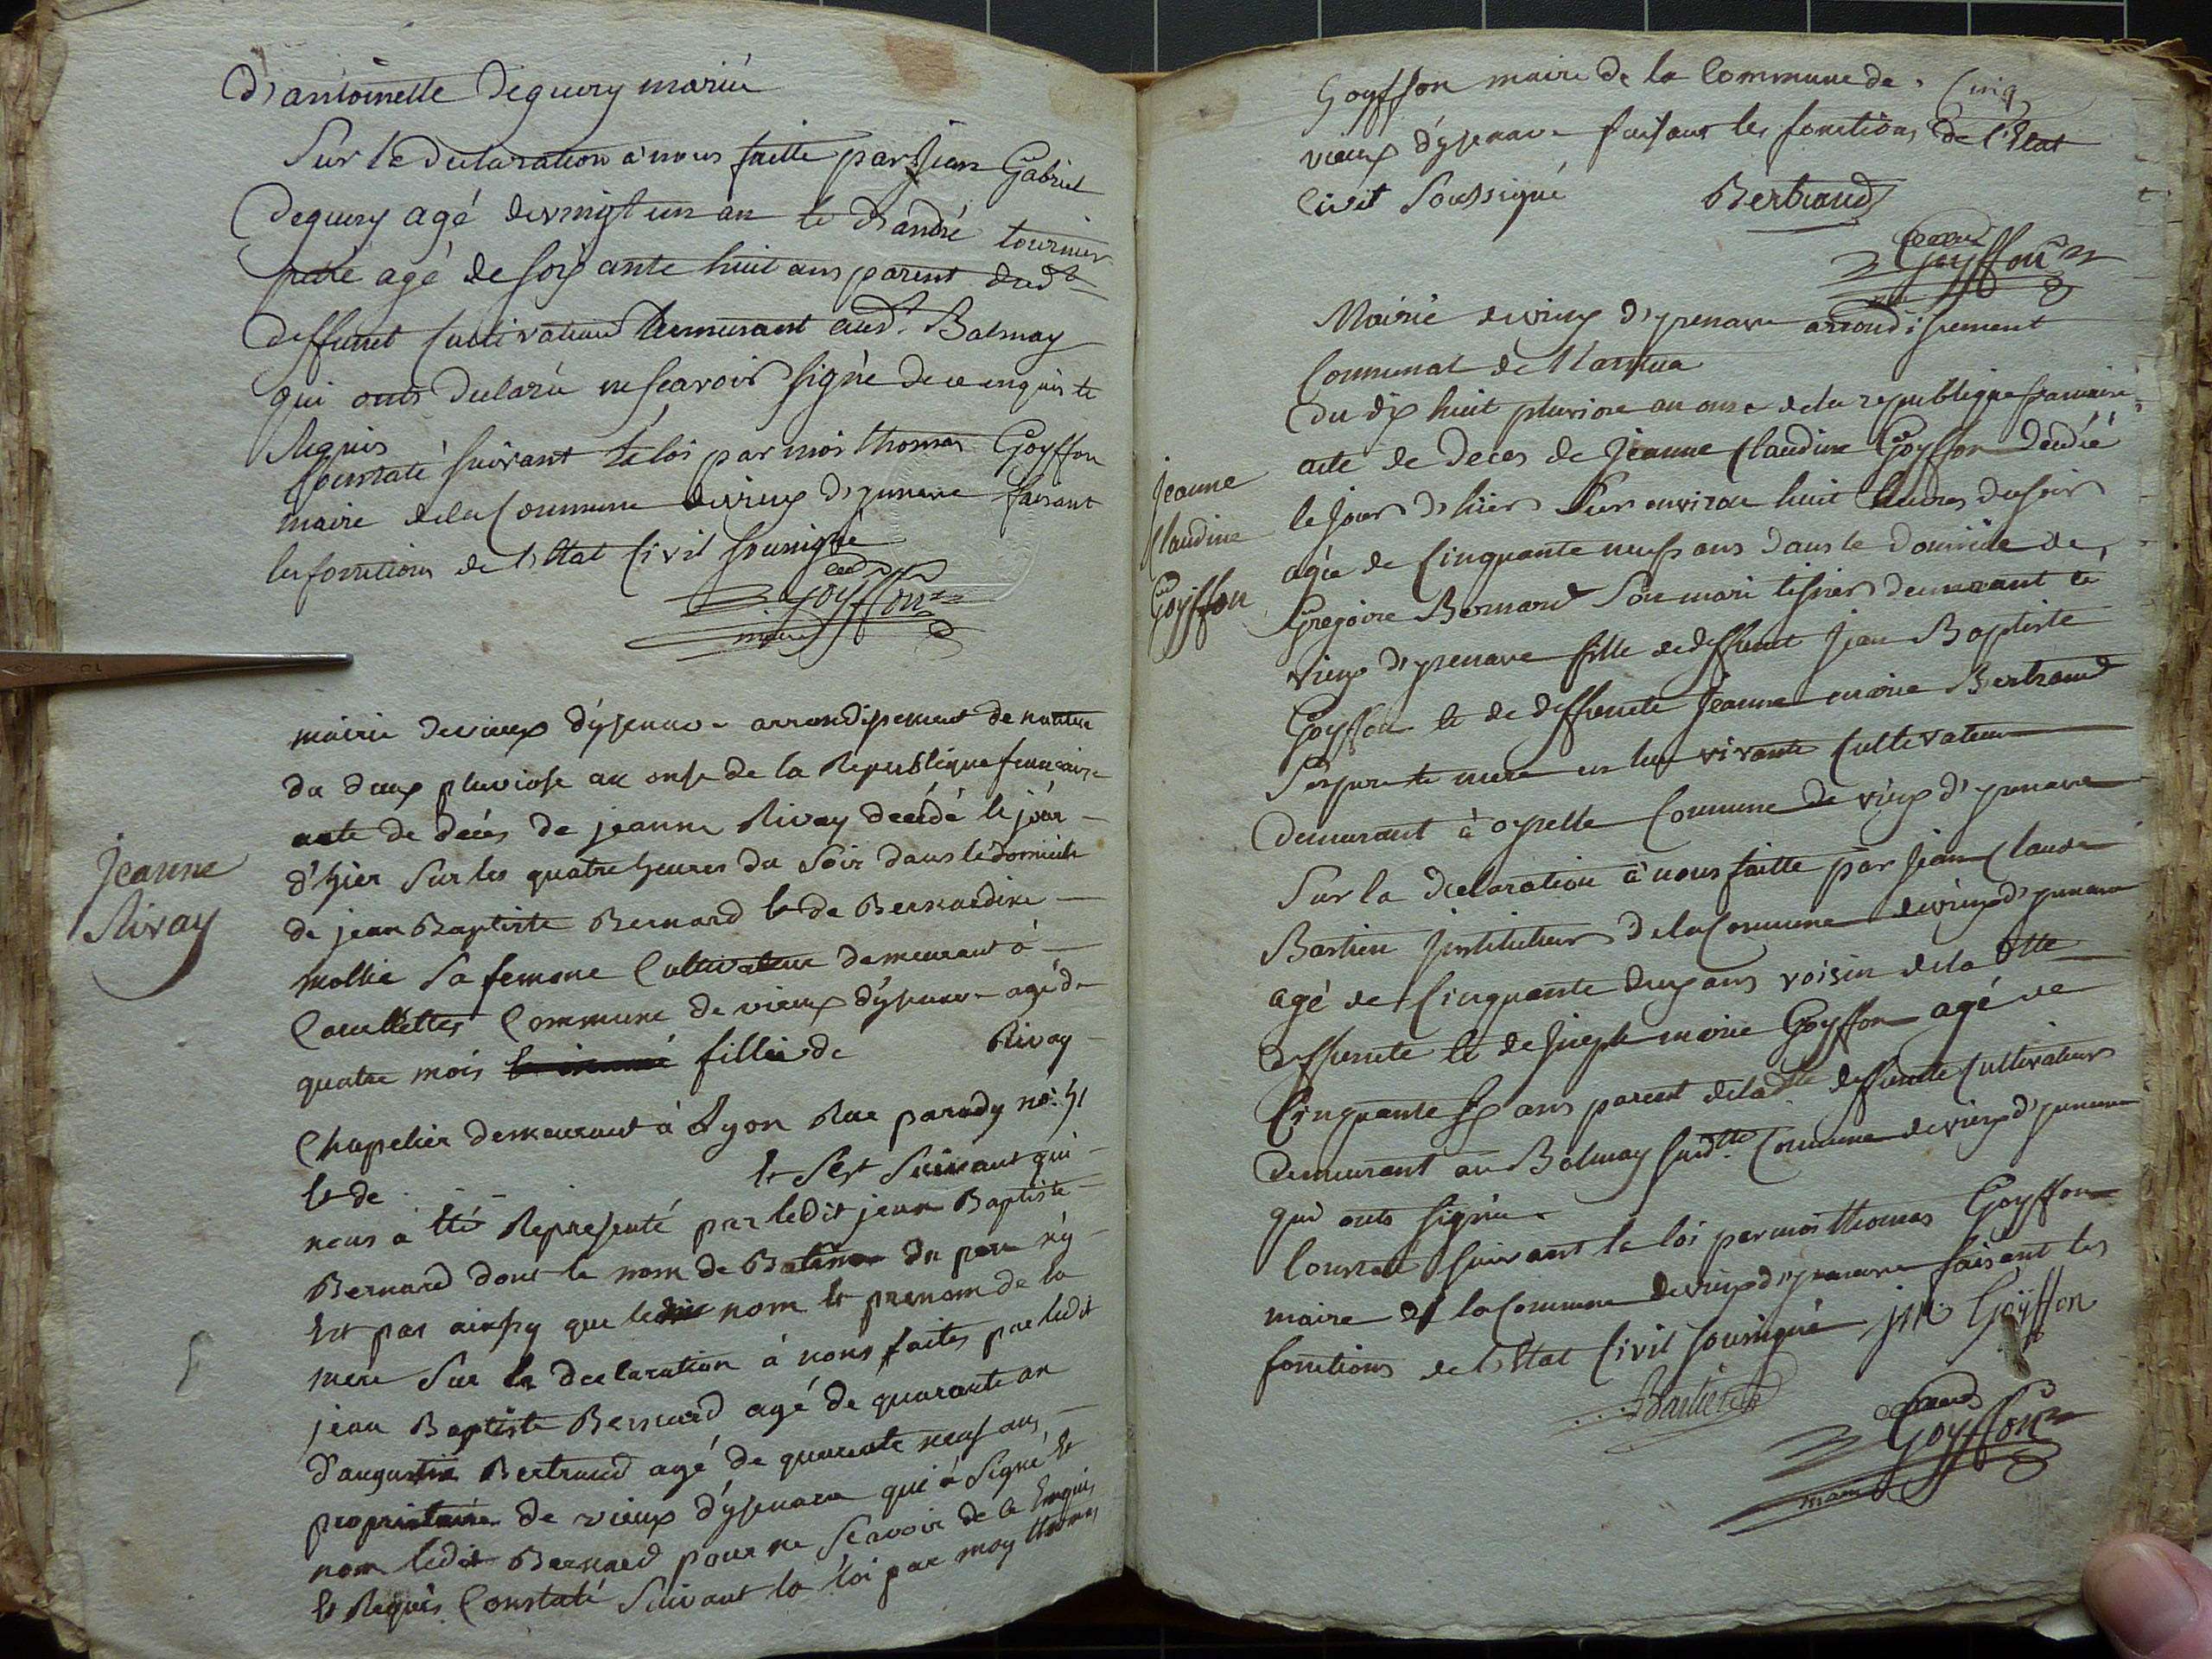 d'antoinette deguery mariée
Sur la declaration a nous faitte par Jean Gabriel
deguery agé de vingt un an et d'andré tournier
agé de soix ante huit ans parent dud.t
deffunt Cultivateurs demeurant aud.t Balmay
qui onts declaré ne scavoir signé de ce enquis et
Requis
Constaté suivant la loi par moi thomas Goyffon
maire de la Commune de vieux d'yzenave faisant
les fonctions de l'Etat Civil soussigné
Goyffon
maire
mairie de vieux d'ysenave arrondissement de nantua
du deux pluviose an onse de la Republique francaise
acte de decés de jeanne Rivay décédé le jour
d'hier sur les quatre heures du soir dans le domicile
de jean Baptiste Bernard et de Bernardine
mollie sa femme Cultivateur demeurant à
Commune de vieux d'ysenave agé de
quatre mois fille de Rivay
Chapelier demeurant à Lyon Rue parady no. 51
et de et sest suivant qui
nous a été Representé par ledit jean Baptiste
Bernard dont le nom de du pere n'y
est pas ainsy que le nom et prenom de la
mere Sur la declaration à nous faites par ledit
jean Baptiste Bernard agé de quarante an
d'augustin Bertrand agé de quarante neuf ans,
propriétaire de vieux d'ysenave qui a signé et
non ledit Bernard pour ne scavoir de ce Enquis
et Requis Constaté Suivant la loi par moy thomas
Jeanne
Rivay
Goyffon maire de la Commune de Cinq
vieux d'ysenave faisant les fonctions de l'Etat
Civil Soussigné Bertrand
Goyffon
Mairie de vieux d'yzenave arrondissement
Communal de Nantua
du dix huit pluviose an onze de la republique francaise
acte de deces de Jeanne Claudine Goyffon décédée
le jour d'hier sur environ huit heures du soir
agée de Cinquante neuf ans dans le domicile de
Grégoire Bernard son mari tisier demeurant à
vieux d'yzenave fille de deffunt Jean Baptiste
Goyffon et de deffuncte Jeanne marie Bertrand
ses pere et mere en leur vivants Cultivateurs
demeurant à Commune de vieux d'yzenave
Sur la declaration à nous faitte par Jean Claude
Bastien Instituteur de la Commune de vieux d'yzenave
agé de Cinquante deux ans voisin de la dtte
deffuncte et de Joseph marie Goyffon agé de
Cinquante ans parent de la dtte deffuncte Cultivateur
demeurant au Balmay susdtte Commune de vieux d'yzenave
qui onts signée
Constaté suivant la loi par moi thomas Goyffon
maire de la Commune de vieux d'yzenave faisant les
fonctions de l'Etat Civil soussigné jm Goyffon
Bastien
Goyffon
maire
Jeanne
Claudine
Goyffon